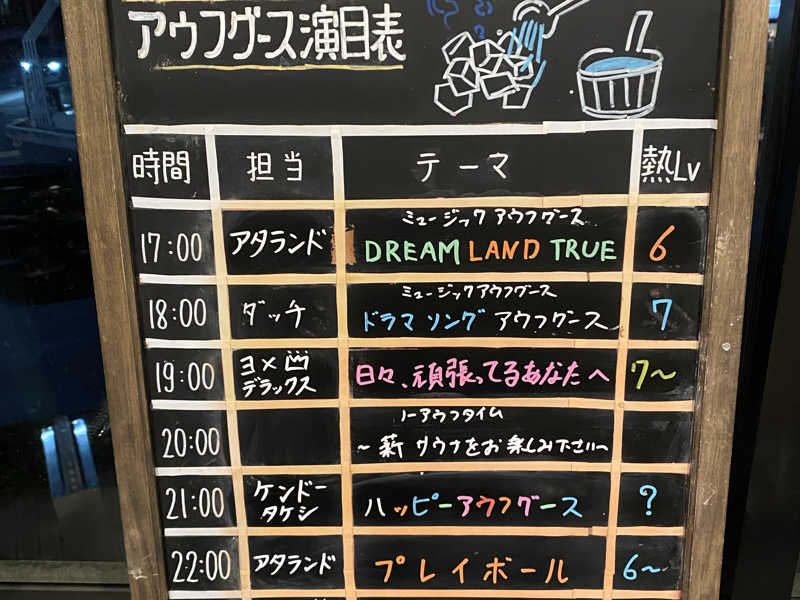 アウフグース演目表
時間 担当 テーマ 熱Lv
17:00 アタランド ミュージックアウフグース
DREAM LAND TRUE 6
18:00 ダッチ ミュージックアウフグース
ドラマソングアウフグース 7
19:00 ヨメ
デラックス 日々、頑張ってるあなたへ 7〜
20:00 ノーアウフタイム
〜薪サウナをお楽しみ下さい〜
21:00 ケンドー
タケシ ハッピーアウフグース ?
22:00 アタランド プレイボール 6〜